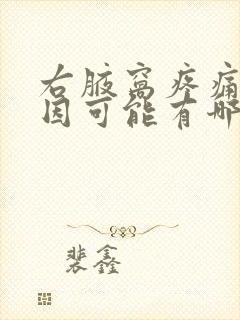 右腋窝疼痛
因可能有哪
裴鑫